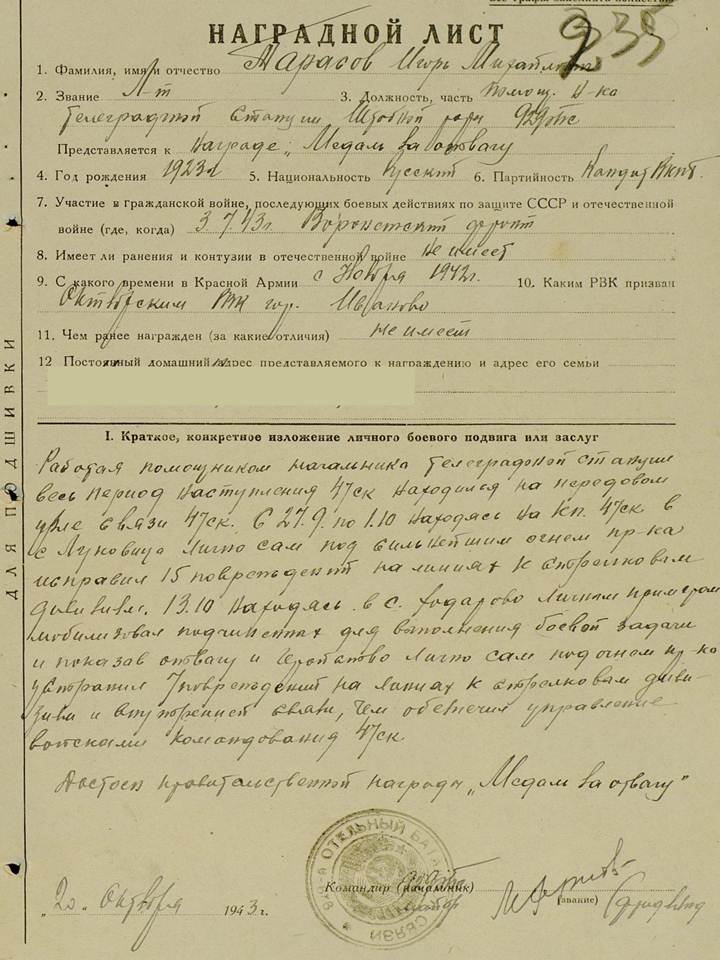 235
НАГРАДНОЙ ЛИСТ
1. Фамилия, имя и отчество Тарасов Игорь Михайлович
2. Звание Л-т 3. Должность, часть помощ. н-ка
телеграфной станции Штабной роты 929
Представляется к награде „Медаль за отвагу
4. Год рождения 1923г 5. Национальность русский 6. Партийность Кандид ВКПб.
7. Участие в гражданской войне, последующих боевых действиях по защите СССР и отечественной
войне (где, когда) 3.7.43г. Воронежский фронт
8. Имеет ли ранения и контузии в отечественной войне не имеет
9. С какого времени в Красной Армии с Ноября 1942г. 10. Каким РВК призван
Октябрским РВК гор. Иваново
11. Чем ранее награжден (за какие отличия) не имеет
12 Постоянный домашний адрес представляемого к награждению и адрес его семьи
ДЛЯ ПОДШИВКИ
I. Краткое, конкретное изложение личного боевого подвига или заслуг
Работая помощником начальника телеграфной станции
весь период наступления 47ск находился на передовом
узле связи 47ск. С 27.9. по 1.10 находясь на Кп. 47ск в
с Луковица лично сам под сильнейшим огнем пр-ка
исправил 15 повреждений на линиях к стрелковым
дивизиям. 13.10 находясь в с. Ходорово личным примером
мобилизовал подчиненных для выполнения боевой задачи
и показав отвагу и лично сам под огнем пр-ка
устранил 7 повреждений на линиях к стрелковым диви-
зиям и внутренней связи, чем обеспечил управление
войсками командования 47ск
Достоен правительственной награды „Медаль за отвагу"
ОТЕЛЬНЫЙ БАТА
СВЯЗИ
Командир (начальник)
майор
(звание)
„20„ Октября 1943г.